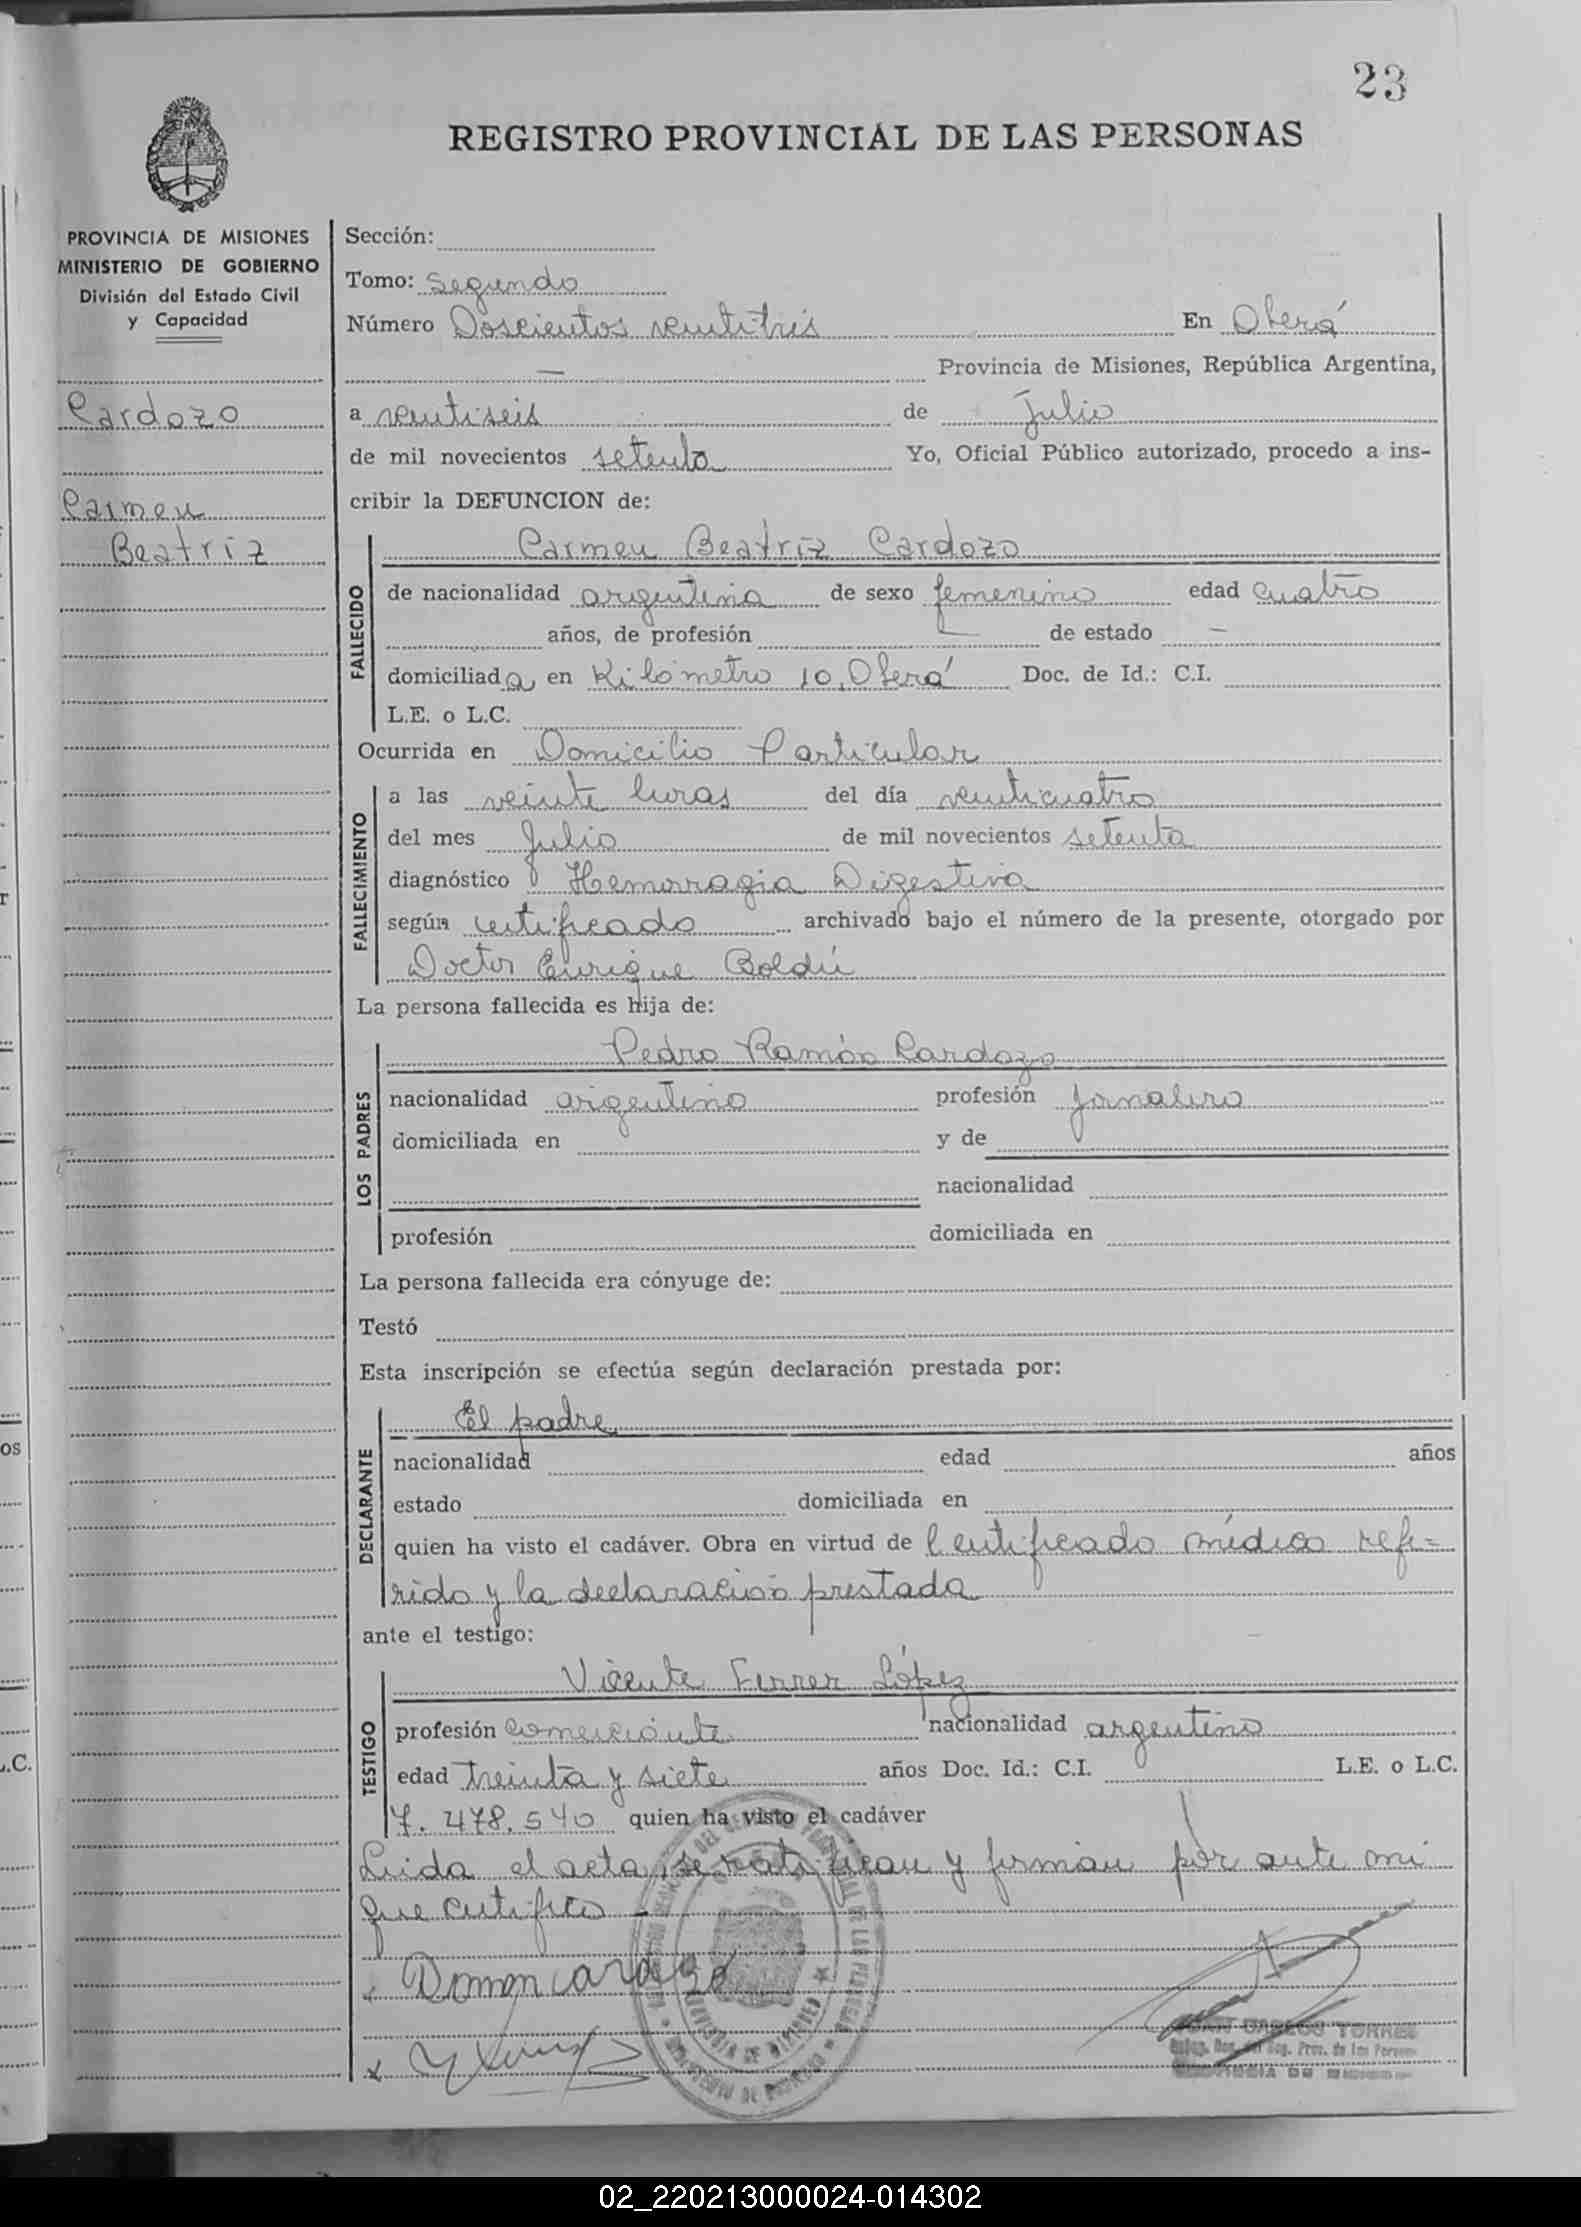 23
REGISTRO PROVINCIAL DE LAS PERSONAS
PROVINCIA DE MISIONES
MINISTERIO DE GOBIERNO
División del Estado Civil
y Capacidad
Cardozo
Carmen
Beatriz
Sección:
Tomo: Segundo
Número Doscientos veintitrés En Oberá
— Provincia de Misiones, República Argentina,
a veintiseis de Julio
de mil novecientos setenta Yo, Oficial Público autorizado, procedo a ins-
cribir la DEFUNCION de:
FALLECIDO
Carmen Beatriz Cardozo
de nacionalidad argentina de sexo femenino edad cuatro
años, de profesión — de estado —
domiciliada en Kilómetro 10, Oberá Doc. de Id.: C.I.
L.E. o L.C.
Ocurrida en Domicilio Particular
FALLECIMIENTO
a las veinte horas del día veinticuatro
del mes Julio de mil novecientos setenta
diagnóstico Hemorragia Digestiva
según certificado archivado bajo el número de la presente, otorgado por
Doctor Enrique Boldú
La persona fallecida es hija de:
LOS PADRES
Pedro Ramón Cardozo
nacionalidad argentino profesión jornalero
domiciliada en y de
nacionalidad
profesión domiciliada en
La persona fallecida era cónyuge de:
Testó
Esta inscripción se efectúa según declaración prestada por:
DECLARANTE
El padre
nacionalidad edad años
estado domiciliada en
quien ha visto el cadáver. Obra en virtud de Certificado médico refe-
rido y la declaración prestada
ante el testigo:
TESTIGO
Vicente Ferrer López
profesión comerciante nacionalidad argentino
edad treinta y siete años Doc. Id.: C.I. L.E. o L.C.
7.478.540 quien ha visto el cadáver
Leida el acta, se ratifican y firman por ante mi
que certifico -
x Domon cardozo
x
JUAN CARLOS TORRES
02_220213000024-014302